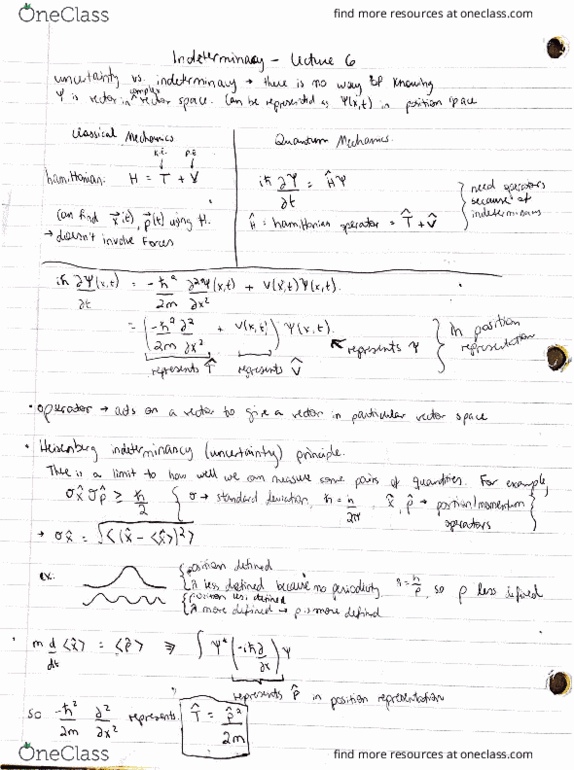 OneClass
find more resources at oneclass.com
Indeterminacy - Lecture 6
uncertainty vs. indeterminacy → there is no way of knowing
Ψ is vector in complex vector space. Can be represented as Ψ(x,t) in position space
Classical Mechanics
Quantum Mechanics.
x,t p,t
hamiltonian: H = T + V
iħ ∂Ψ/∂t = ĤΨ
need operators because of indeterminacy
Can find x⃗(t), p⃗(t) using H.
→ doesn't involve forces
Ĥ = hamiltonian operator = T̂ + V̂
iħ ∂Ψ(x,t)/∂t = -ħ²/2m ∂²Ψ(x,t)/∂x² + V(x,t)Ψ(x,t).
= (-ħ²/2m ∂²/∂x² + V(x,t)) Ψ(x,t).
represents T̂ represents V̂ represents Ψ
In position representation
• operator → acts on a vector to give a vector in particular vector space
• Heisenberg indeterminancy (uncertainty) principle.
There is a limit to how well we can measure some pairs of quantities. For example,
σx̂ σp̂ ≥ ħ/2 { σ → standard deviation, ħ = h/2π, x̂, p̂ → position/momentum operators }
→ σx̂ = √⟨(x̂ - ⟨x̂⟩)²⟩
ex: position defined
λ less defined because no periodicity λ = h/p, so p less defined
position less defined
λ more defined → p more defined
• m d/dt ⟨x̂⟩ = ⟨p̂⟩ ⇒ ∫ Ψ* (-iħ∂/∂x) Ψ
represents p̂ in position representation
so -ħ²/2m ∂²/∂x² represents T̂ = p̂²/2m
OneClass
find more resources at oneclass.com